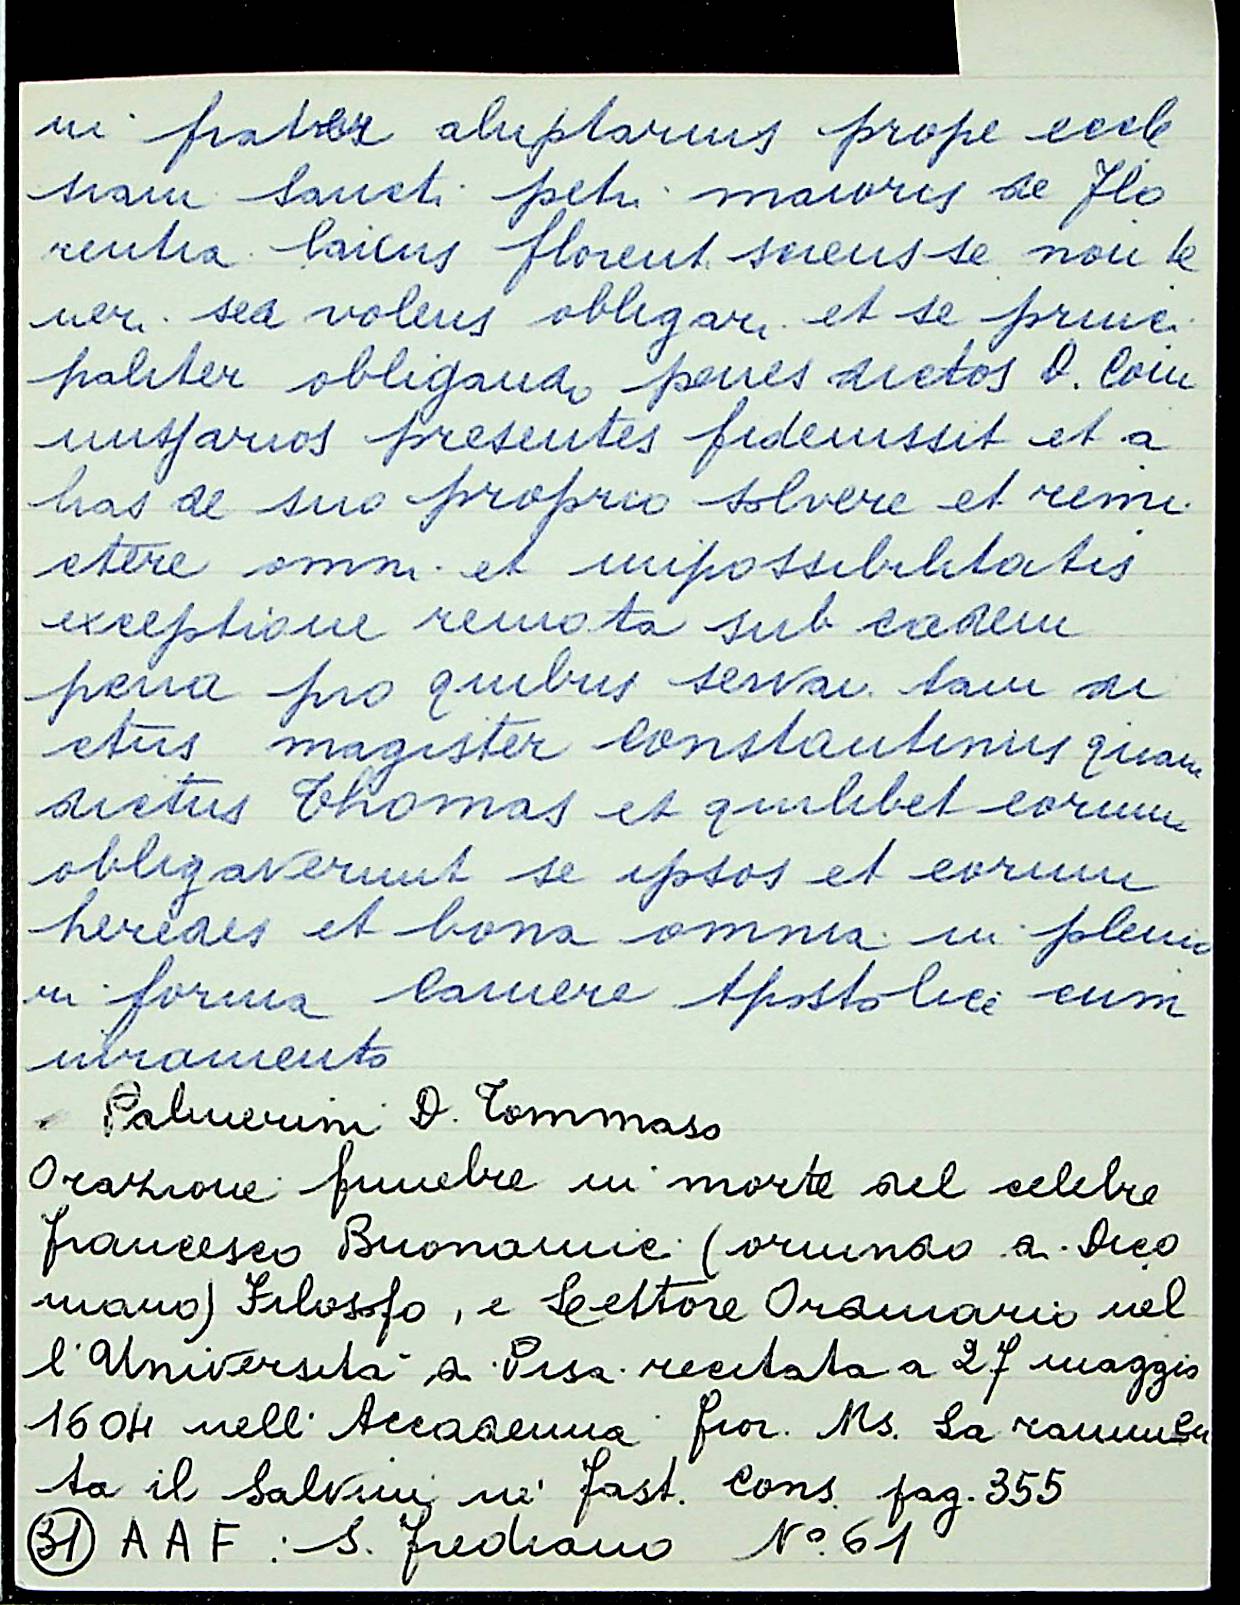 ni frater aluptarius prope eccle
siam Sancti petri maioris de Flo
rentia laicus florent. sciens se non te
neri sed volens obligari et se princi
paliter obligando penes dictos D. Com
missarios presentes fideiussit et a
lias de suo proprio solvere et remi
ctere omni et impossibilitatis
exceptione remota sub eadem
pena pro quibus servan. tam di
ctus magister Constantinus quam
dictus Thomas et quilibet eorum
obligaverunt se ipsos et eorum
heredes et bona omnia in plenio
ri forma Camere Apostolice cum
iuramento
Palmerini D. Tommaso
Orazione funebre in morte del celebre
Francesco Buonamici (oriundo di Dico
mano) Filosofo, e Lettore Ordinario nel
l'Università di Pisa recitata a 27 maggio
1604 nell'Accademia fior. Ms. La rammen
ta il Salvini ne' Fast. Cons. pag. 355
31 A A F : S. Frediano N° 61